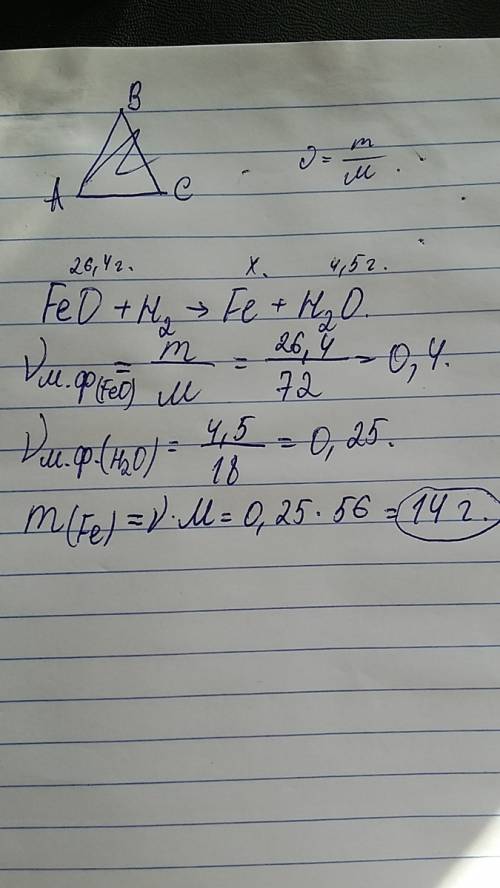 B
A C
ν = m/M.
26,4 г. x. 4,5 г.
FeO + H₂ → Fe + H₂O.
ν м.ф(FeO) = m/M = 26,4/72 = 0,4.
ν м.ф.(H₂O) = 4,5/18 = 0,25.
m(Fe) = ν·M = 0,25·56 = 14 г.